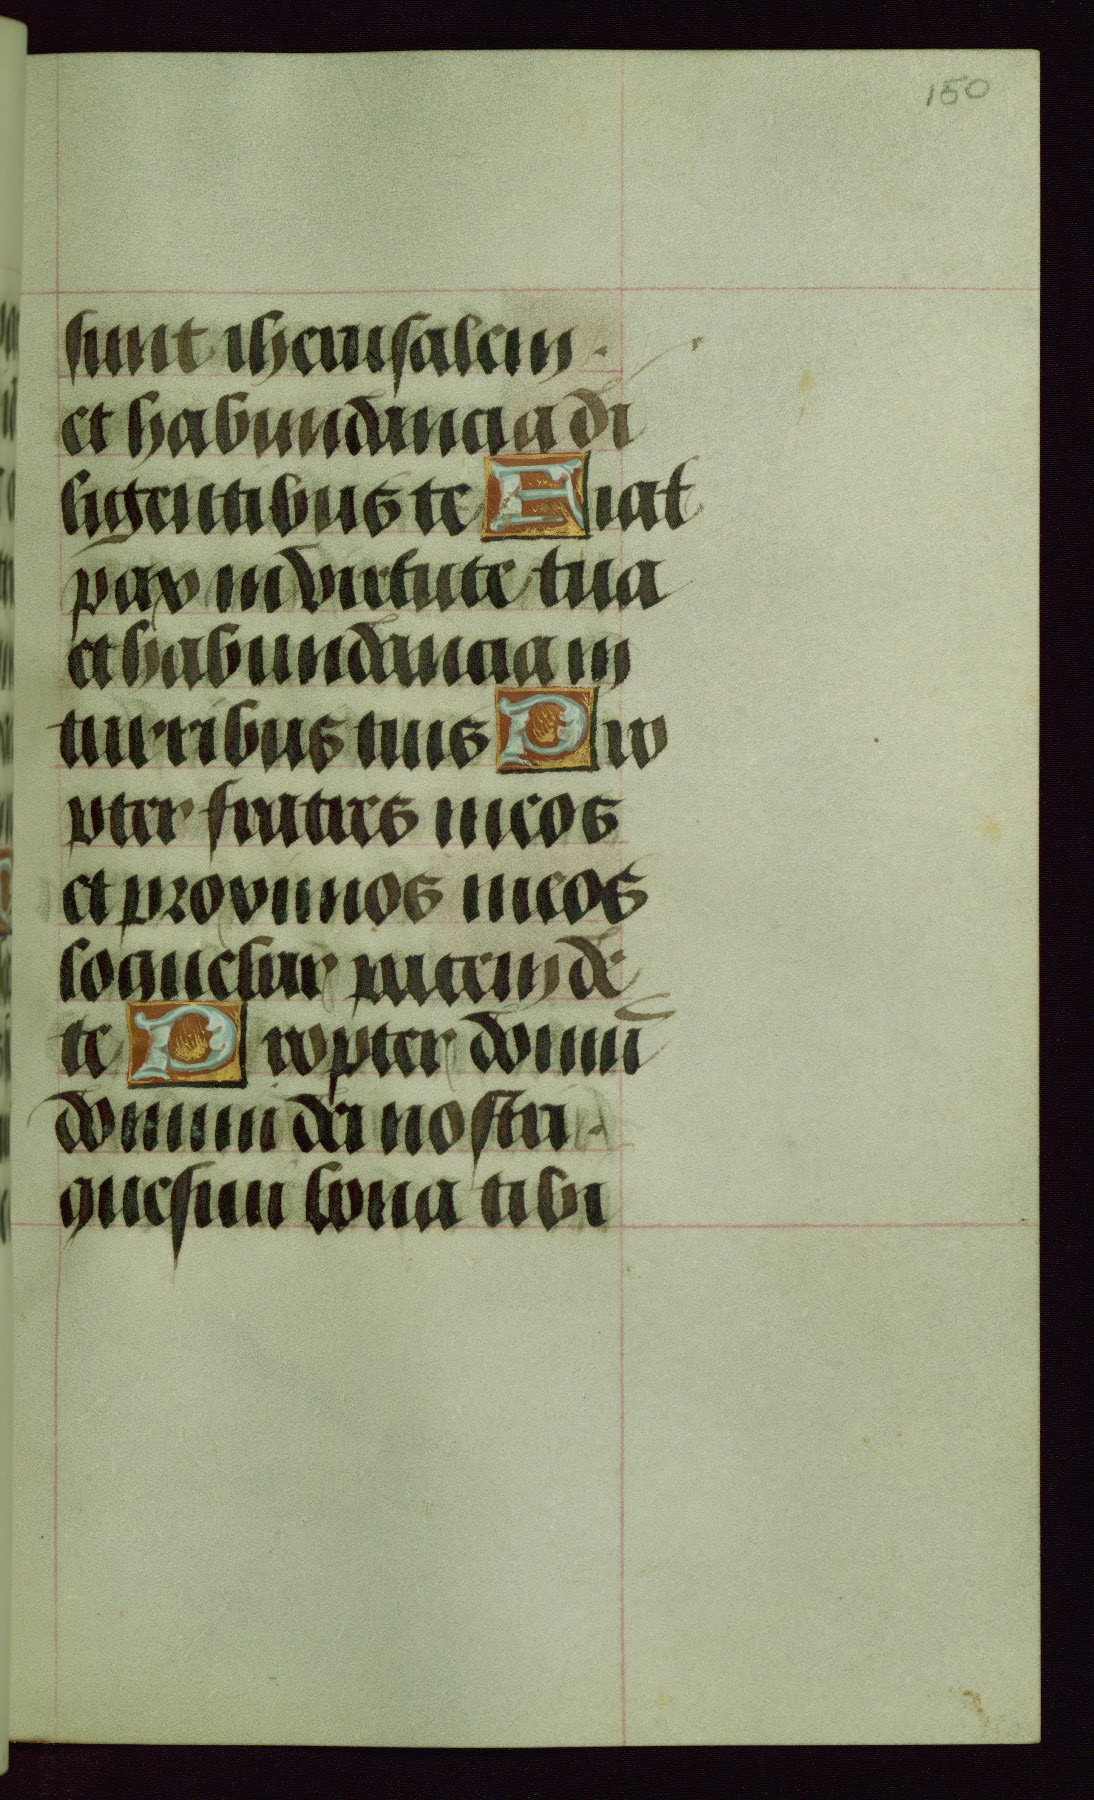 150
sunt iherusalem .
et habundancia di
ligentibus te Fiat
pax in virtute tua
et habundancia in
turribus tuis Pro
pter fratres meos
et proximos meos
loquebar pacem de
te Propter domũ
domini dei nostri .
quesiui bona tibi